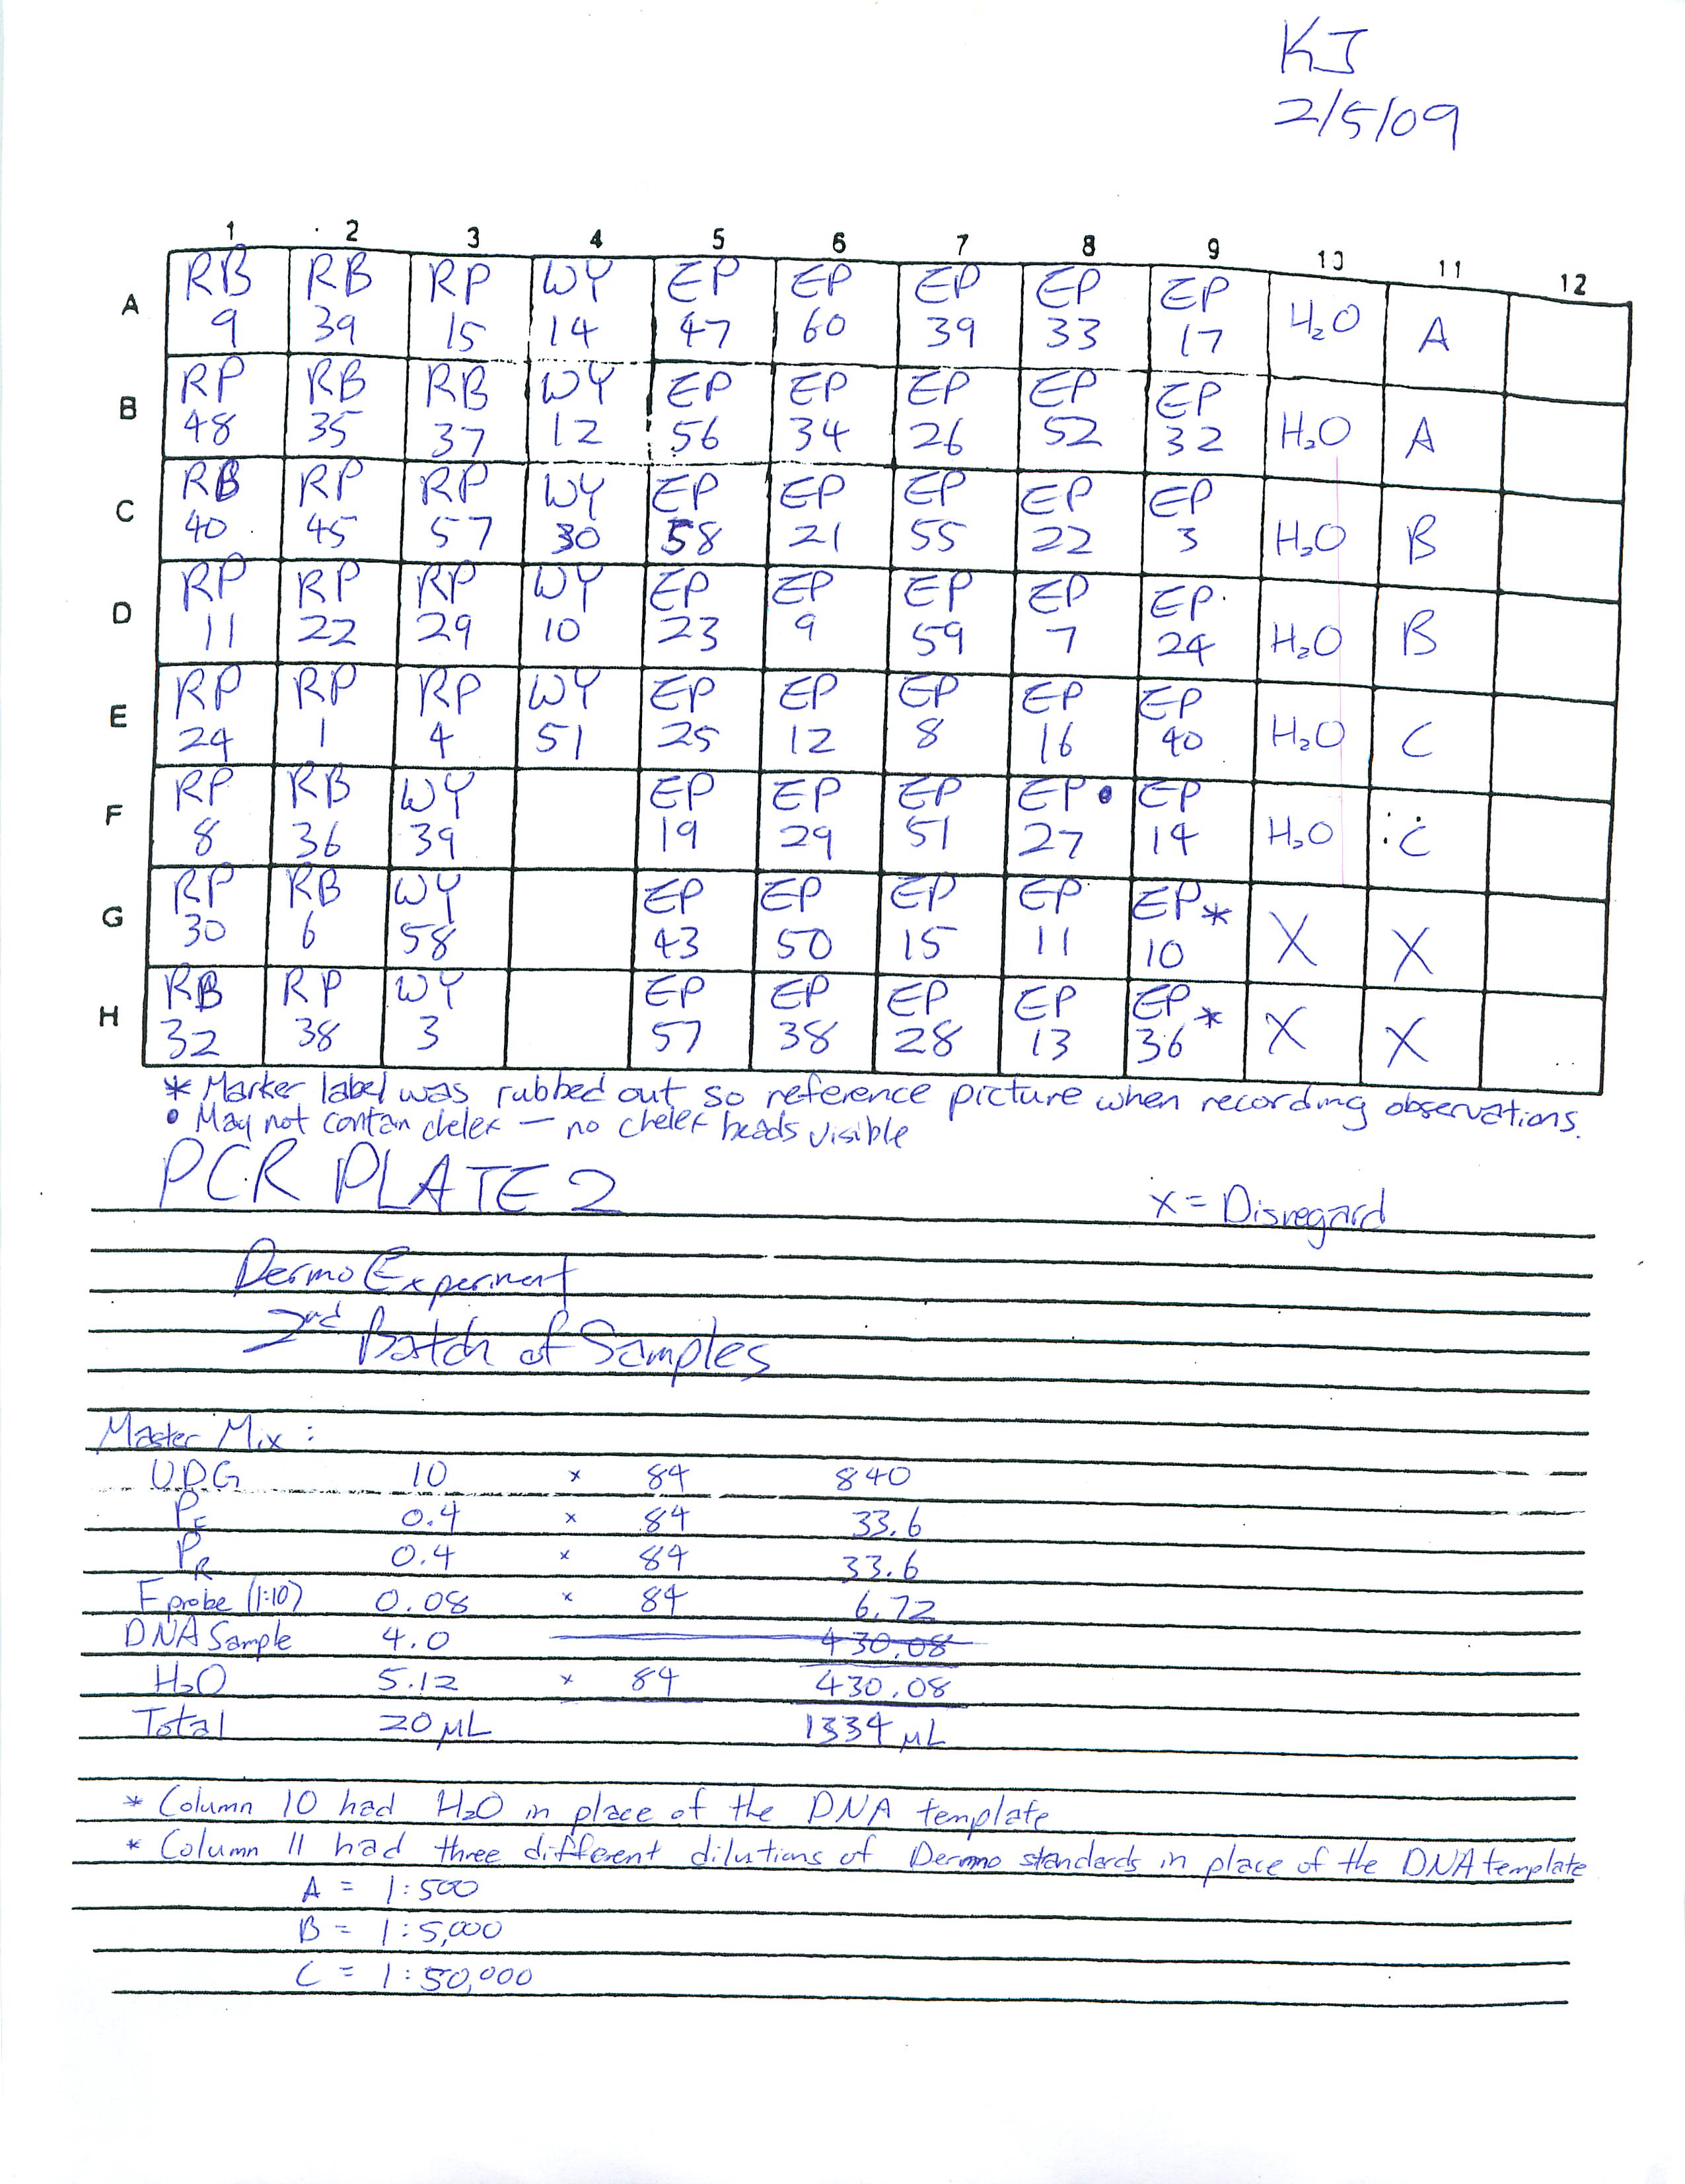 KJ
2/5/09
1 2 3 4 5 6 7 8 9 10 11 12
A RB 9 RB 39 RP 15 WY 14 EP 47 EP 60 EP 39 EP 33 EP 17 H₂O A
B RP 48 RB 35 RB 37 WY 12 EP 56 EP 34 EP 26 EP 52 EP 32 H₂O A
C RB 40 RP 45 RP 57 WY 30 EP 58 EP 21 EP 55 EP 22 EP 3 H₂O B
D RP 11 RP 22 RP 29 WY 10 EP 23 EP 9 EP 59 EP 7 EP 24 H₂O B
E RP 24 RP 1 RP 4 WY 51 EP 25 EP 12 EP 8 EP 16 EP 40 H₂O C
F RP 8 RB 36 WY 39 EP 19 EP 29 EP 51 EP • 27 EP 14 H₂O C
G RP 30 RB 6 WY 58 EP 43 EP 50 EP 15 EP 11 EP * 10 X X
H RB 32 RP 38 WY 3 EP 57 EP 38 EP 28 EP 13 EP * 36 X X
* Marker label was rubbed out so reference picture when recording observations.
• May not contan chelex — no chelex beads visible
PCR PLATE 2
X = Disregard
Dermo Experiment
2nd Batch of Samples
Master Mix :
UDG 10 x 84 840
PF 0.4 x 84 33.6
PR 0.4 x 84 33.6
F probe (1:10) 0.08 x 84 6.72
DNA Sample 4.0 430.08
H₂O 5.12 x 84 430.08
Total 20 µL 1334 µL
* Column 10 had H₂O in place of the DNA template
* Column 11 had three different dilutions of Dermo standards in place of the DNA template
A = 1:500
B = 1:5,000
C = 1:50,000